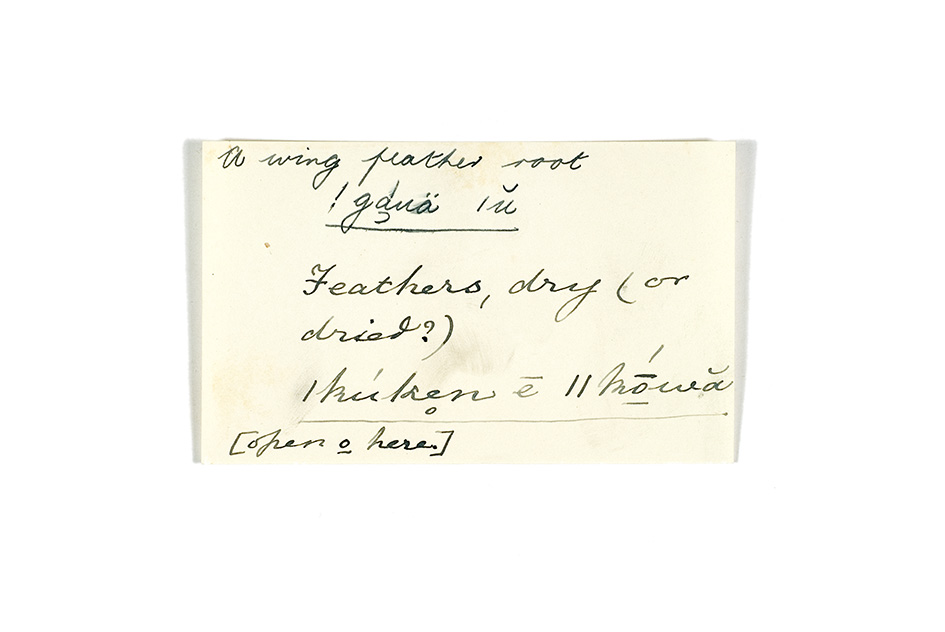 A wing feather root
!gáuä |ŭ
Feathers, dry (or
dried?)
|kúken̥ ē ||kṓwă
[open o here.]